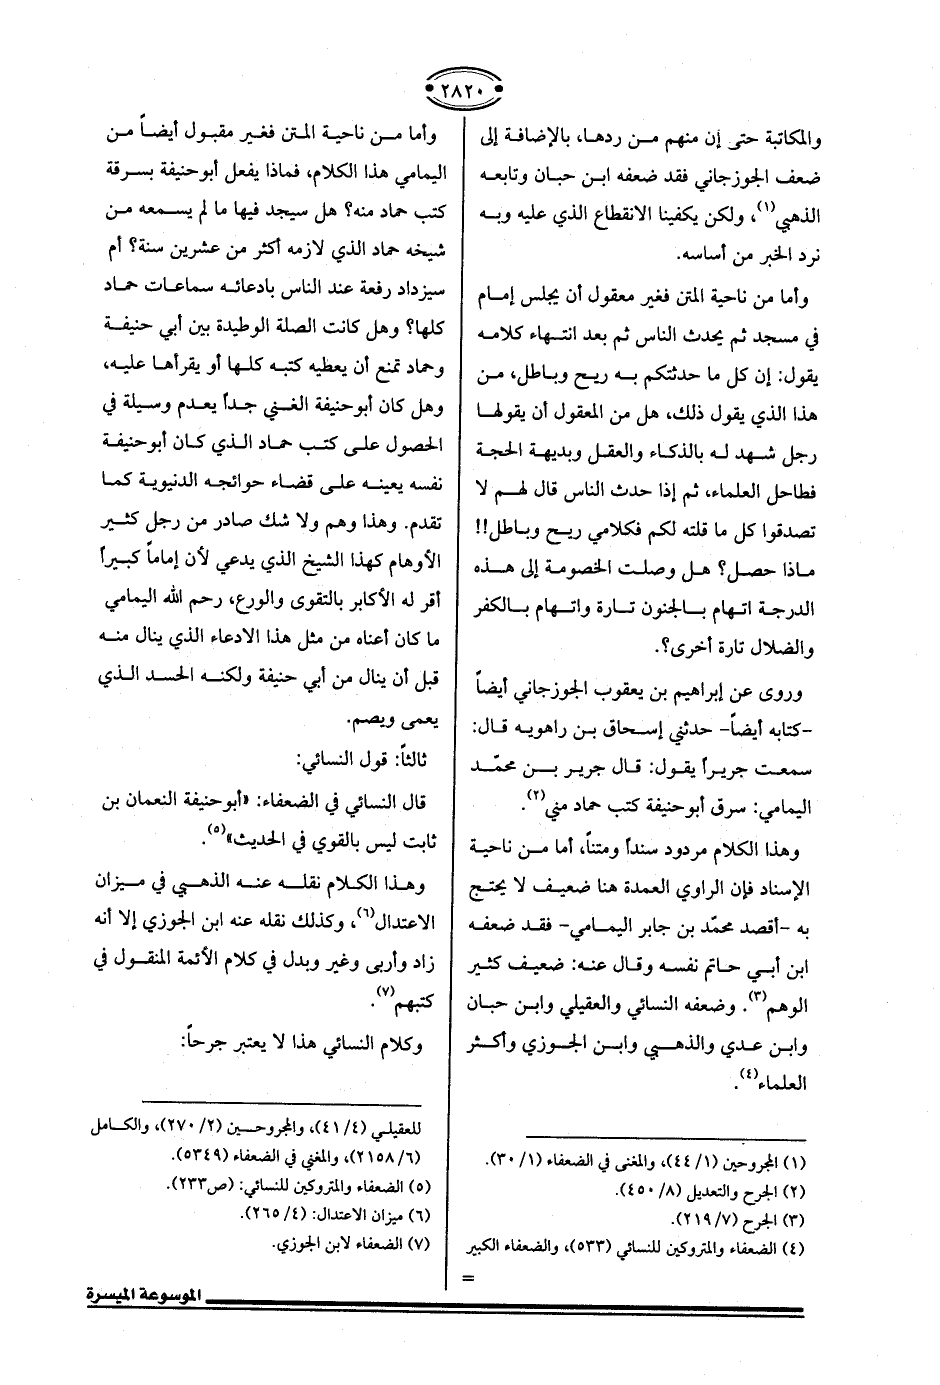 ٢٨٢٠
والمكاتبة حتى إن منهم من ردها، بالإضافة إلى
ضعف الجوزجاني فقد ضعفه ابن حبان وتابعه
الذهبي(١)، ولكن يكفينا الانقطاع الذي عليه وبه
نرد الخبر من أساسه.
وأما من ناحية المتن فغير معقول أن يجلس إمام
في مسجد ثم يحدث الناس ثم بعد انتهاء كلامه
يقول: إن كل ما حدثتكم به ريح وباطل، من
هذا الذي يقول ذلك، هل من المعقول أن يقولها
رجل شهد له بالذكاء والعقل وبديهة الحجة
فطاحل العلماء، ثم إذا حدث الناس قال لهم لا
تصدقوا كل ما قلته لكم فكلامي ريح وباطل!!
ماذا حصل؟ هل وصلت الخصومة إلى هذه
الدرجة اتهام بالجنون تارة واتهام بالكفر
والضلال تارة أخرى؟.
وروى عن إبراهيم بن يعقوب الجوزجاني أيضاً
-كتابه أيضاً- حدثني إسحاق بن راهويه قال:
سمعت جريراً يقول: قال جرير بن محمّد
اليمامي: سرق أبوحنيفة كتب حماد مني(٢).
وهذا الكلام مردود سنداً ومتناً، أما من ناحية
الإسناد فإن الراوي العمدة هنا ضعيف لا يحتج
به -أقصد محمّد بن جابر اليمامي- فقد ضعفه
ابن أبي حاتم نفسه وقال عنه: ضعيف كثير
الوهم(٣). وضعفه النسائي والعقيلي وابن حبان
وابن عدي والذهبي وابن الجوزي وأكثر
العلماء(٤).
(١) المجروحين (١/ ٤٤)، والمغنى في الضعفاء (١/ ٣٠).
(٢) الجرح والتعديل (٨/ ٤٥٠).
(٣) الجرح (٧/ ٢١٩).
(٤) الضعفاء والمتروكين للنسائي (٥٣٣)، والضعفاء الكبير
=
وأما من ناحية المتن فغير مقبول أيضاً من
اليمامي هذا الكلام، فماذا يفعل أبوحنيفة بسرقة
كتب حماد منه؟ هل سيجد فيها ما لم يسمعه من
شيخه حماد الذي لازمه أكثر من عشرين سنة؟ أم
سيزداد رفعة عند الناس بادعائه سماعات حماد
كلها؟ وهل كانت الصلة الوطيدة بين أبي حنيفة
وحماد تمنع أن يعطيه كتبه كلها أو يقرأها عليه،
وهل كان أبوحنيفة الغني جداً يعدم وسيلة في
الحصول على كتب حماد الذي كان أبوحنيفة
نفسه يعينه على قضاء حوائجه الدنيوية كما
تقدم. وهذا وهم ولا شك صادر من رجل كثير
الأوهام كهذا الشيخ الذي يدعي لأن إماماً كبيراً
أقر له الأكابر بالتقوى والورع، رحم الله اليمامي
ما كان أعناه من مثل هذا الادعاء الذي ينال منه
قبل أن ينال من أبي حنيفة ولكنه الحسد الذي
يعمى ويصم.
ثالثاً: قول النسائي:
قال النسائي في الضعفاء: «أبوحنيفة النعمان بن
ثابت ليس بالقوي في الحديث»(٥).
وهذا الكلام نقله عنه الذهبي في ميزان
الاعتدال(٦)، وكذلك نقله عنه ابن الجوزي إلا أنه
زاد وأربى وغير وبدل في كلام الأئمة المنقول في
كتبهم(٧).
وكلام النسائي هذا لا يعتبر جرحاً:
للعقيلي (٤/ ٤١)، والمجروحين (٢/ ٢٧٠)، والكامل
(٦/ ٢١٥٨)، والمغني في الضعفاء (٥٣٤٩).
(٥) الضعفاء والمتروكين للنسائي: (ص٢٣٣).
(٦) ميزان الاعتدال: (٤/ ٢٦٥).
(٧) الضعفاء لابن الجوزي.
الموسوعة الميسرة